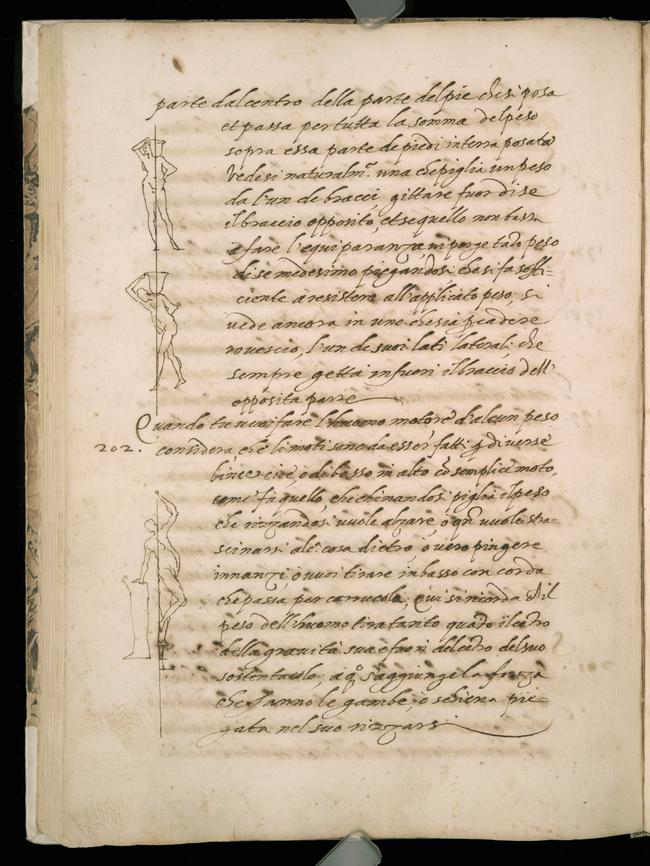 parte dal centro della parte del pie che si posa
et passa per tutta la somma del peso
sopra essa parte de piedi in terra posata
Vedesi naturalm.e una che piglia un peso
da l'un de bracci, gittare fuor di se
il braccio opposito, et se quello non basta
a fare l'equiparanza vi porge tāto peso
di se medesimo piegandosi che si fa soffi=
ciente a resistere all'applicato peso, si
vede ancora in uno che sia p cadere
rovescio, l'un de suoi lati laterali che
sempre getta in fuori il braccio dell'
opposita parte
Quando tu vuoi fare l'huomo motore d'alcun peso
202. considera, che li moti sono da esser fatti p diverse
linee cioè, o di basso in alto cō semplice moto,
come fa quello, che chinandosi piglia el peso
che rizzandosi vuole alzare, o qn vuole stra=
scinarsi alc. cosa dietro, o vero pingere
innanzi o vuoi tirare in basso con corda
che passa per carrucola, qui si ricorda ch'il
peso dell'huomo tira tanto quāto il cētro
della gravità sua è fuori del cētro del suo
sostentacolo, a qo s'aggiunge la forza
che fanno le gambe, o schiena pie=
gata nel suo rizzarsi